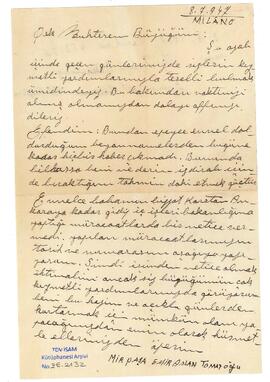 8.7.942
MİLANO
Çok Muhterem Büyüğüm:
Şu acaklı
içinde geçen günlerimizde sizlerin kıy-
metli yardımlarınızla teselli bulmak
ümidindeyiz. Bu bakımdan vaktinizi
almış olmamızdan dolayı affınızı
dileriz
Efendim: Bundan epeyce evvel dol-
durduğum beyannamelerden bugüne
kadar hiçbir haber çıkmadı. Bununda
bilhassa beni ve derin ızdırab için-
de bıraktığını tahmin
Evvelce babamın bizzat Ankaraya kadar gidip iç işleri bakanlığına
yaptığı müracaatlarda bir netice ver-
medi. yapılan müracaatlarımızın
tarih ve numarasını aşağıya yapı-
yorum. Şimdi izinden netice almak
ihtimalini ancak siz büyüğümün çok
kıymetli yardımlarınızla görüyorum
beni bu hazin ve acıklı günlerden
kurtarmak için mümkün olanı ya-
pacağınızdan emin olarak hürmet
le ellerinizden öperim
MİRPAŞA EMİRASLAN TOMATOĞU
TDV İSAM
Kütüphanesi Arşivi
No ZE.2132